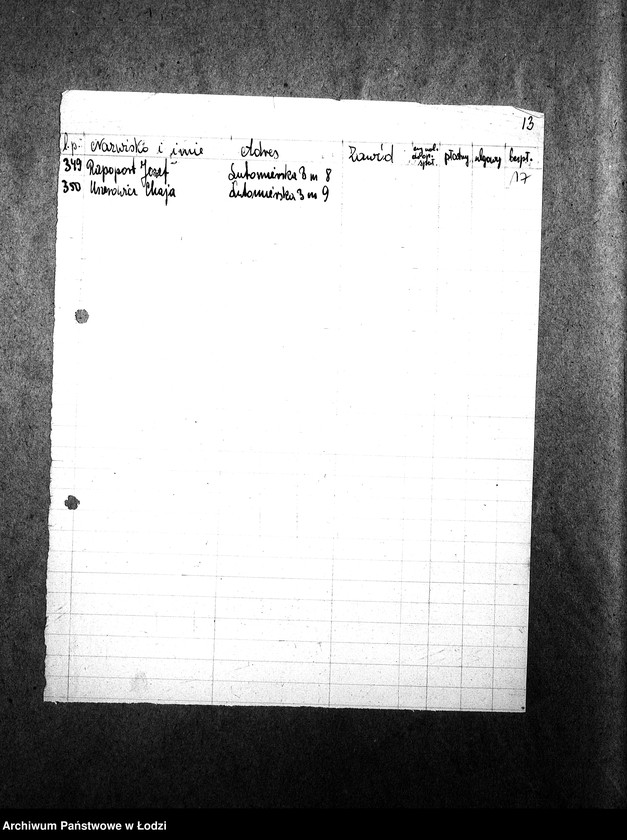 13
l.p. Nazwisko i imię Adres Zawód płatny ulgowy bezpł.
349 Rapoport Jozef Lutomierska 8 m 8
17
350 Chaja Lutomierska 3 m 9
Archiwum Państwowe w Łodzi